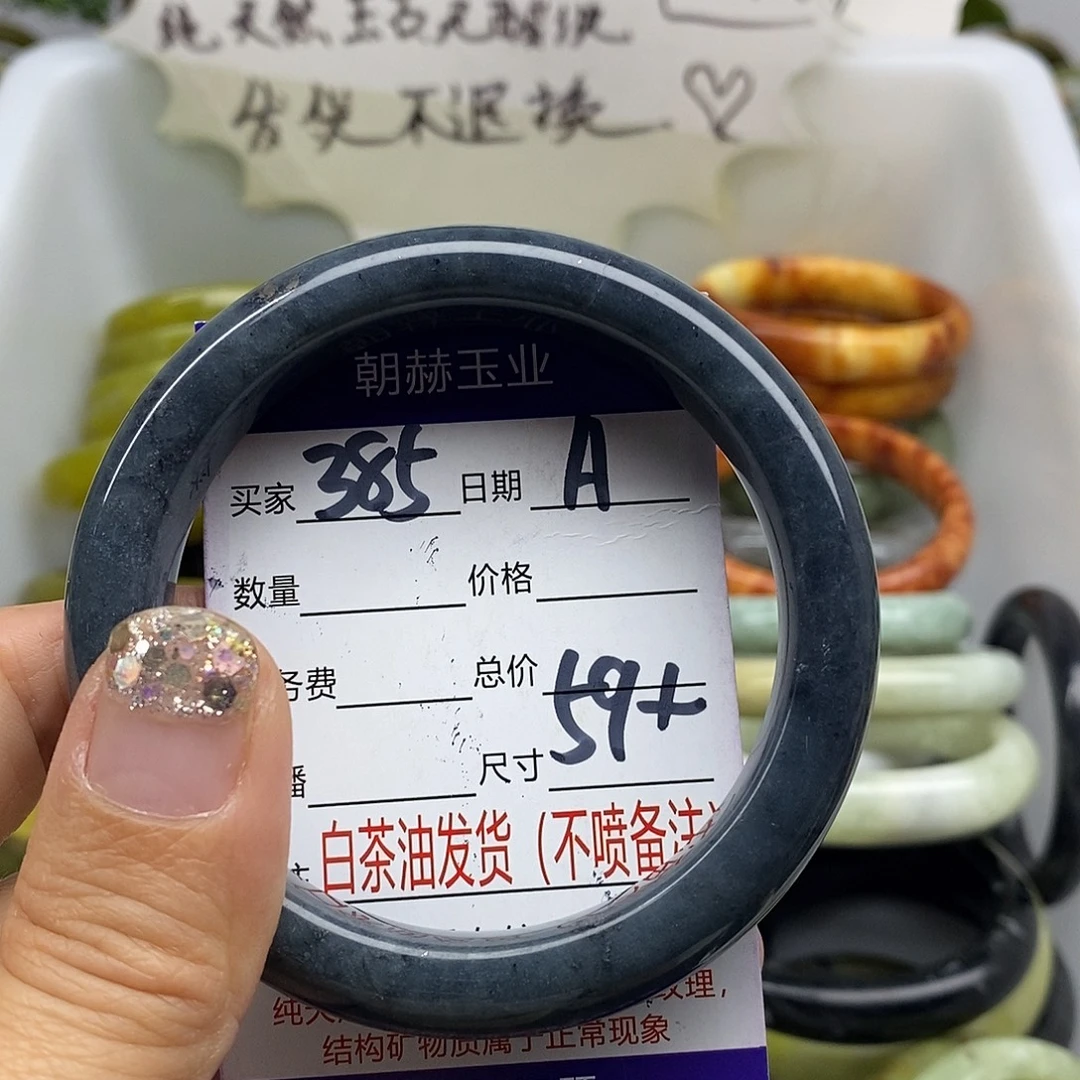 纯天然玉石无酸洗
售出不退换
朝赫玉业
买家 385 日期 A
数量 价格
务费 总价
播 尺寸 59+
白茶油发货（不喷备注）
纹理，
结构矿物质属于正常现象